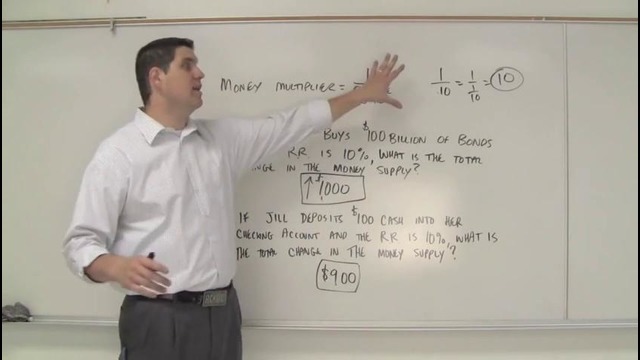 MONEY MULTIPLIER = 1
1/.10 = 1/1/10 = 10
BUYS $100 BILLION OF BONDS
RR IS 10%, WHAT IS THE TOTAL
IN THE MONEY SUPPLY?
↑$1000
IF JILL DEPOSITS $100 CASH INTO HER
CHECKING ACCOUNT AND THE RR IS 10%, WHAT IS
THE TOTAL CHANGE IN THE MONEY SUPPLY?
$900